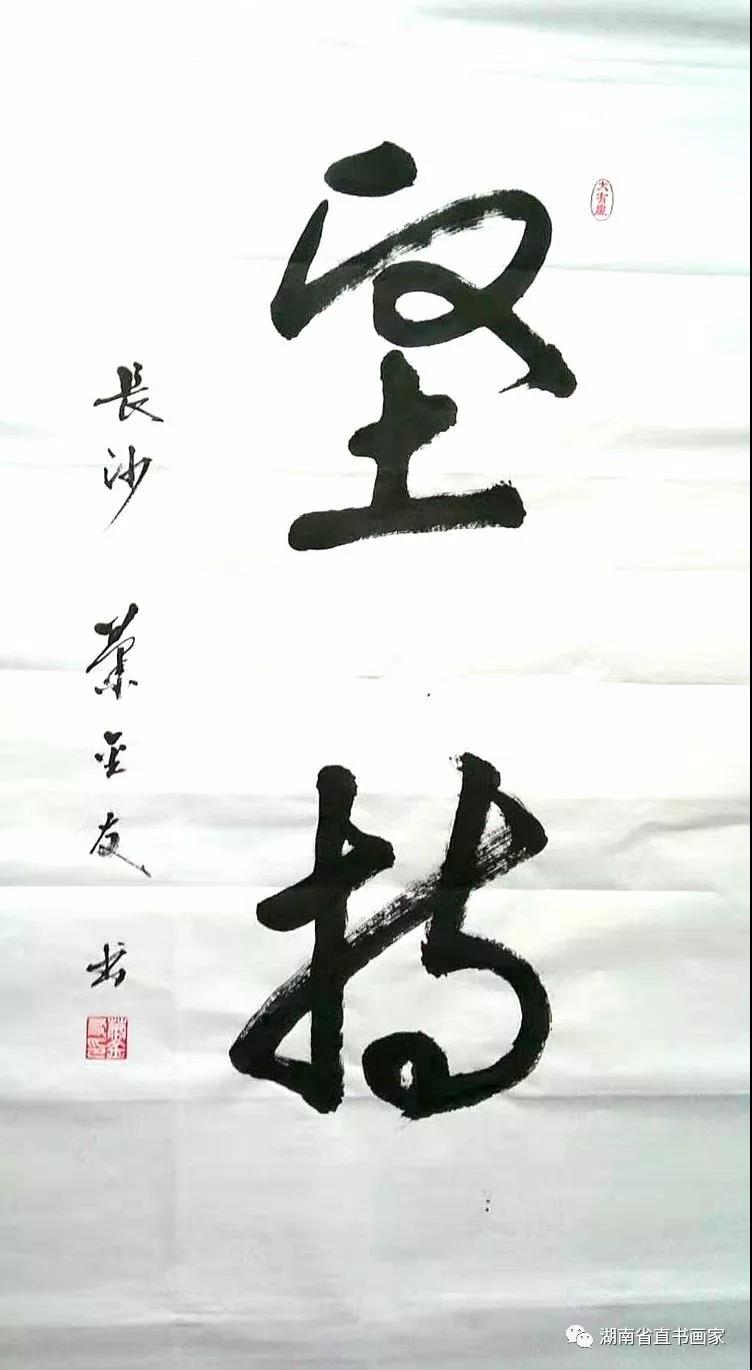 坚持
長沙 葉金友 书
湖南省直书画家